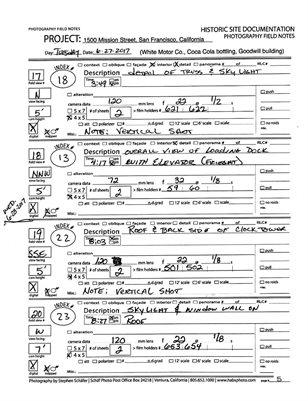 PHOTOGRAPHY FIELD NOTES
HISTORIC SITE DOCUMENTATION
PHOTOGRAPHY FIELD NOTES
PROJECT: 1500 Mission Street, San Francisco, California
Day: Tuesday Date: 6-27-2017 (White Motor Co., Coca Cola bottling, Goodwill building)
INDEX #
17 18
context oblique façade interior detail panorama # of HLC#
Description DETAIL OF TRUSS & SKYLIGHT
3:49
N
view facing
alteration push
camera data 120 mm 22 f/ 1/2 s
5' 5 x 7 # of sheets 2 > film holders # 621 622
cam height 4 x 5
X digital X mapped
Misc.: NOTE: VERTICAL SHOT
INDEX #
18 13
context oblique façade interior detail panorama # of HLC#
Description OVERALL VIEW OF LOADING DOCK
4:17 WITH ELEVATOR (FREIGHT)
NNW
view facing
alteration push
camera data 72 mm 32 f/ 1/8 s
5' 5 x 7 # of sheets 2 > film holders # 59 60
cam height 4 x 5
digital mapped
Misc.:
INDEX #
19 22
context oblique façade interior detail panorama # of HLC#
Description ROOF & BACK SIDE OF CLOCK TOWER
8:03
SSE
view facing
alteration push
camera data 120 mm 22 f/ 1/8 s
5' 5 x 7 # of sheets 2 > film holders # 501 502
cam height 4 x 5
digital mapped
Misc.: NOTE: VERTICAL SHOT
INDEX #
20 23
context oblique façade interior detail panorama # of HLC#
Description SKYLIGHT & WINDOW WALL ON
8:27 ROOF
W
view facing
alteration push
camera data 120 mm 22 f/ 1/8 s
7' 5 x 7 # of sheets 2 > film holders # 653 654
cam height 4 x 5
digital mapped
Misc.:
Photography by Stephen Schafer | Schaf Photo Post Office Box 24218 | Ventura, California | 805.652.1000 | www.habsphoto.com page # 5